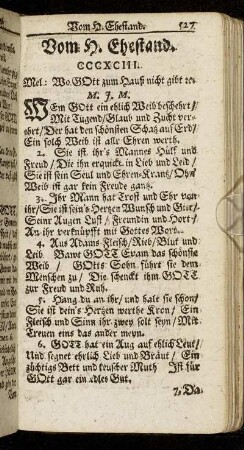 Vom H. Ehestand. 527
Vom H. Ehestand.
CCCXCIII.
Mel: Wo GOtt zum Hauß nicht gibt ꝛc.
M. J. M.
WEm GOtt ein ehlich Weib beschehrt/
Mit Tugend/ Glaub und Zucht ver-
ehrt/ Der hat den schönsten Schatz auf Erd/
Ein solch Weib ist alle Ehren werth.
2. Sie ist ihr's Mannes Hülf und
Freud/ Die ihn erquickt in Lieb und Leid/
Sie ist sein Seul und Ehren-Krantz/ Ohn
Weib ist gar kein Freude gantz.
3. Ihr Mann hat Trost und Ehr von
ihr/ Sie ist sein's Hertzen Wunsch und Gier/
Seinr Augen Lust/ Freundin und Hort/
An ihr verknüpfft mit Gottes Wort.
4. Aus Adams Fleisch/ Rieb/ Blut und
Leib. Bawt GOTT Evam das schönste
Weib/ GOtts Sohn führt sie dem
Menschen zu/ Die schenckt ihm GOTT
zur Freud und Ruh.
5. Hang du an ihr/ und halt sie schon/
Sie ist dein's Hertzen werthe Kron/ Ein
Fleisch und Sinn ihr zwey solt seyn/ Mit
Treuen eins das ander meyn.
6. GOTT hat ein Aug auf ehlich Leut/
Und segnet ehrlich Lieb und Bräut/ Ein
züchtigs Bett und keuscher Muth Ist für
GOtt gar ein edles Gut.
7. Da